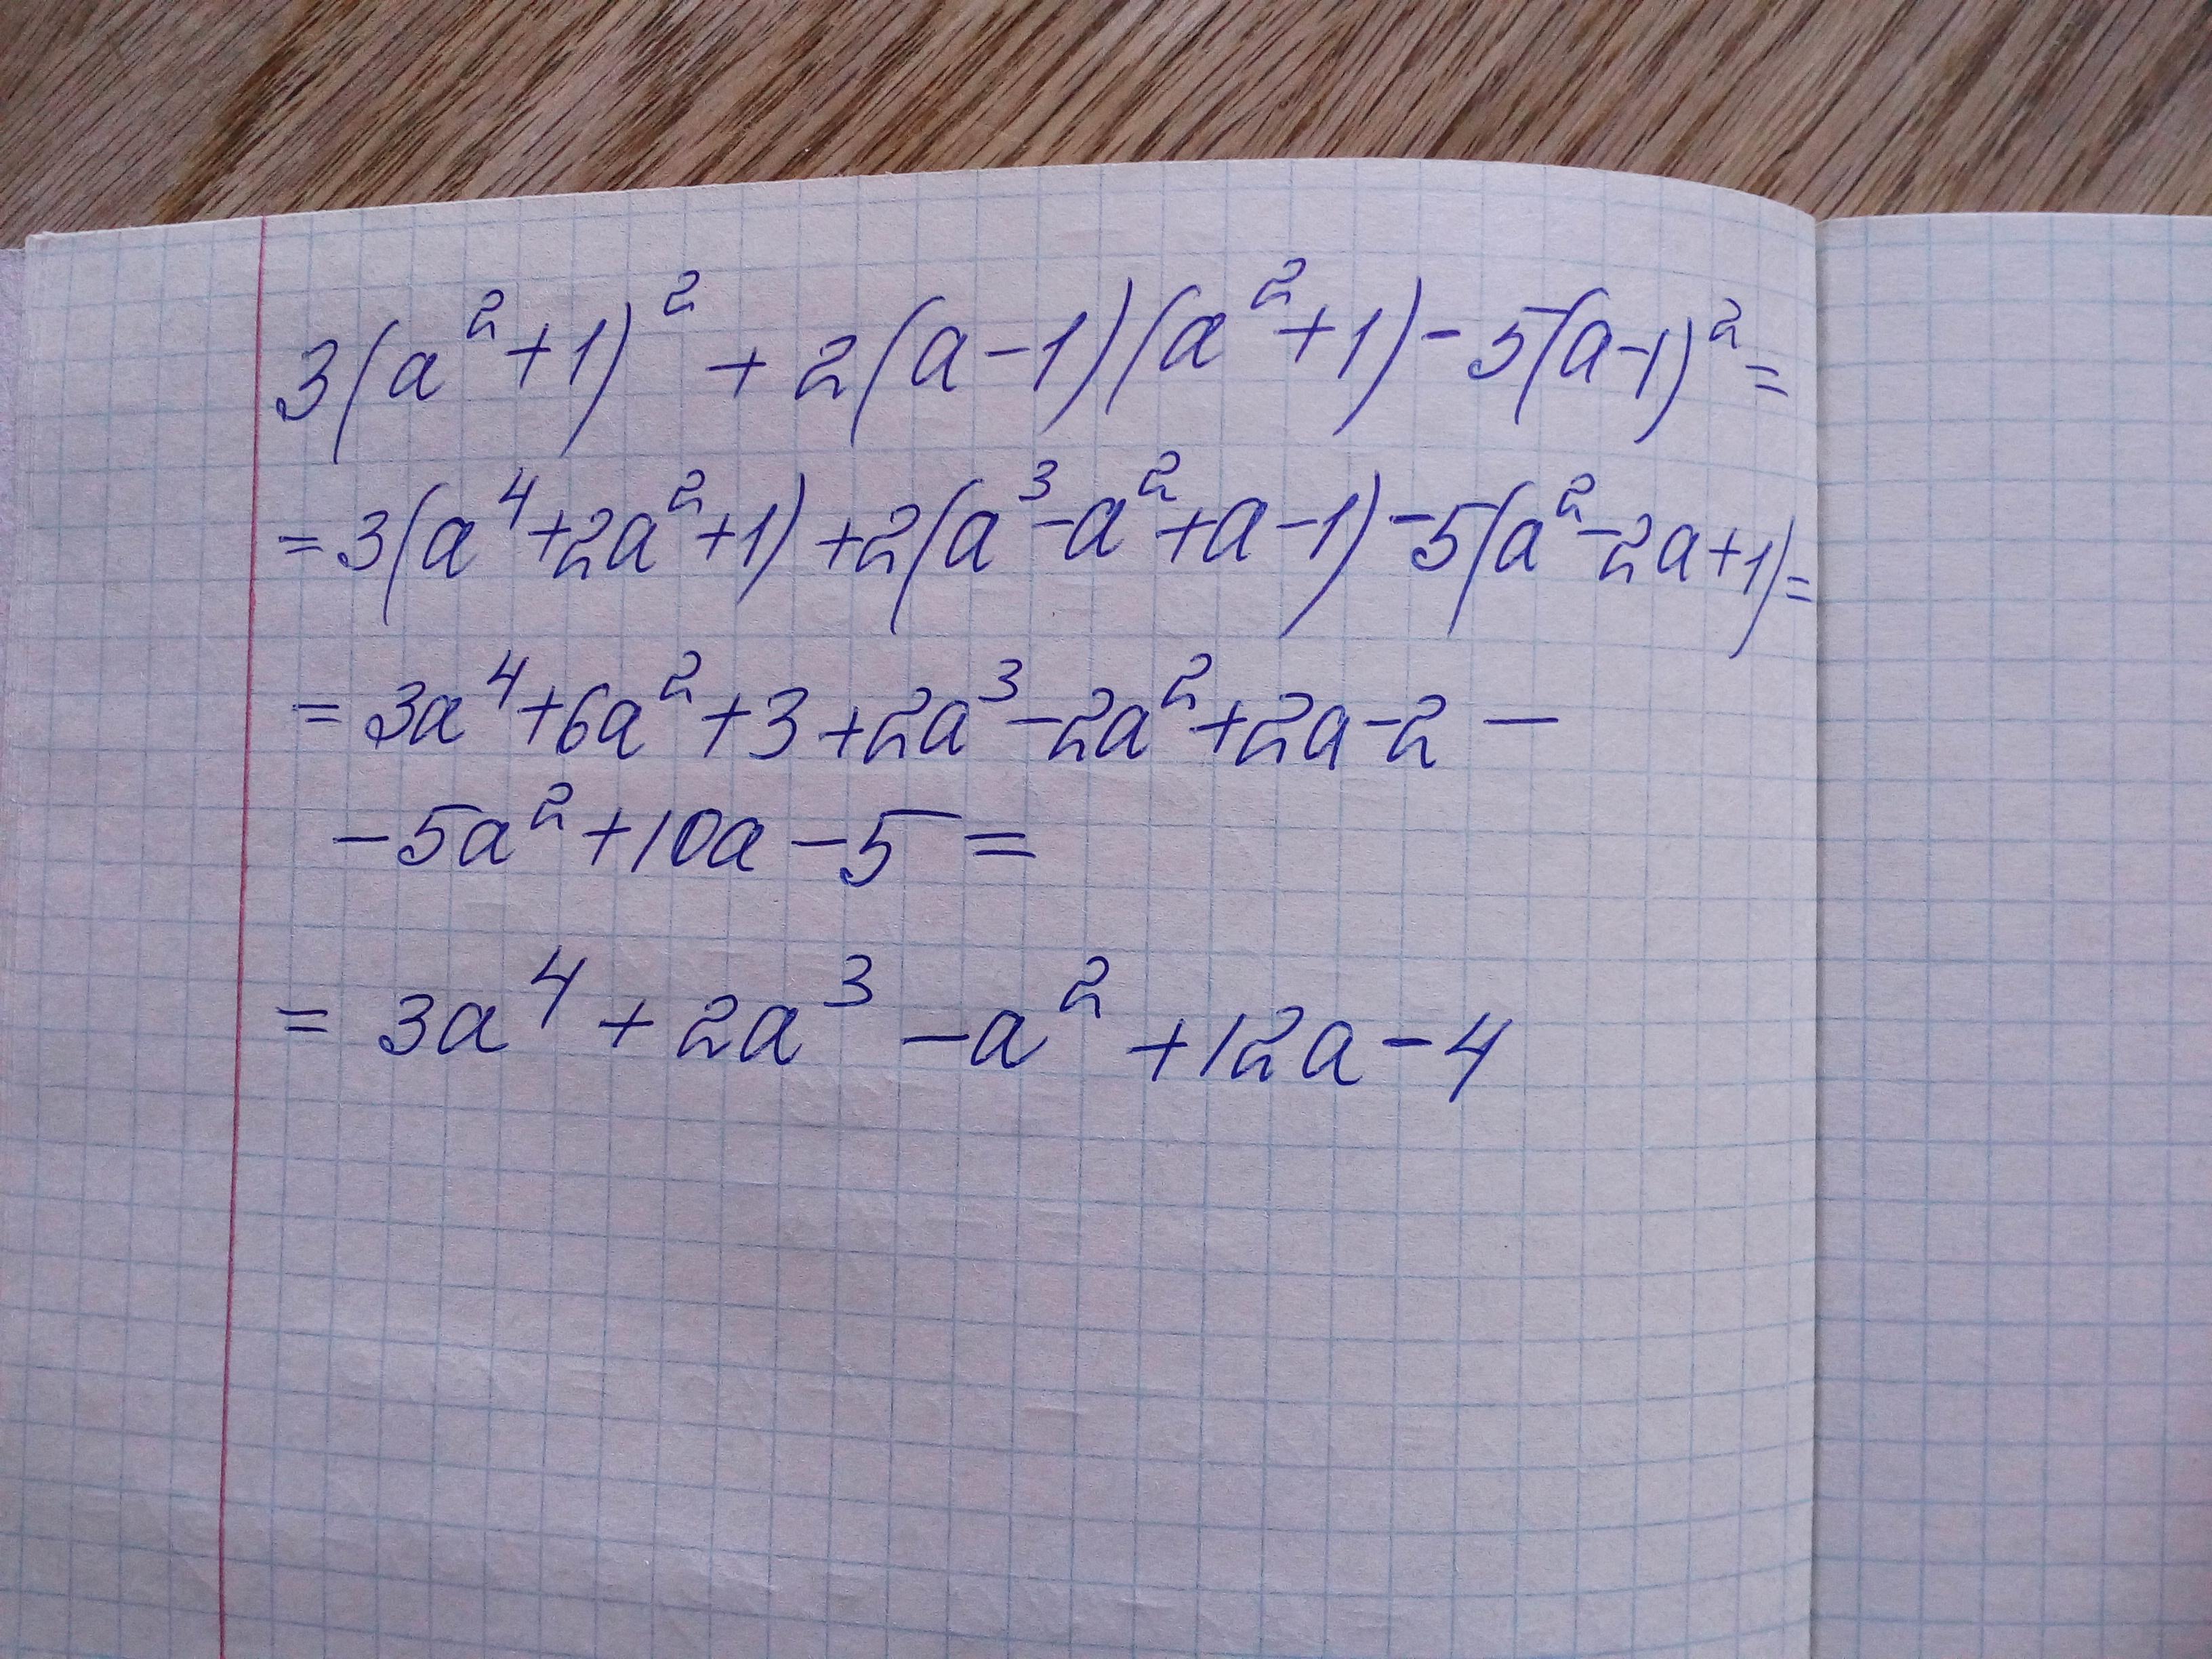 3(a²+1)² + 2(a-1)(a²+1) - 5(a-1)² =
= 3(a⁴+2a²+1) + 2(a³-a²+a-1) - 5(a²-2a+1) =
= 3a⁴+6a²+3+2a³-2a²+2a-2 -
-5a²+10a-5 =
= 3a⁴ + 2a³ - a² + 12a - 4